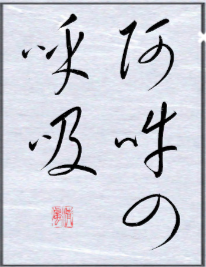 阿吽の
呼吸